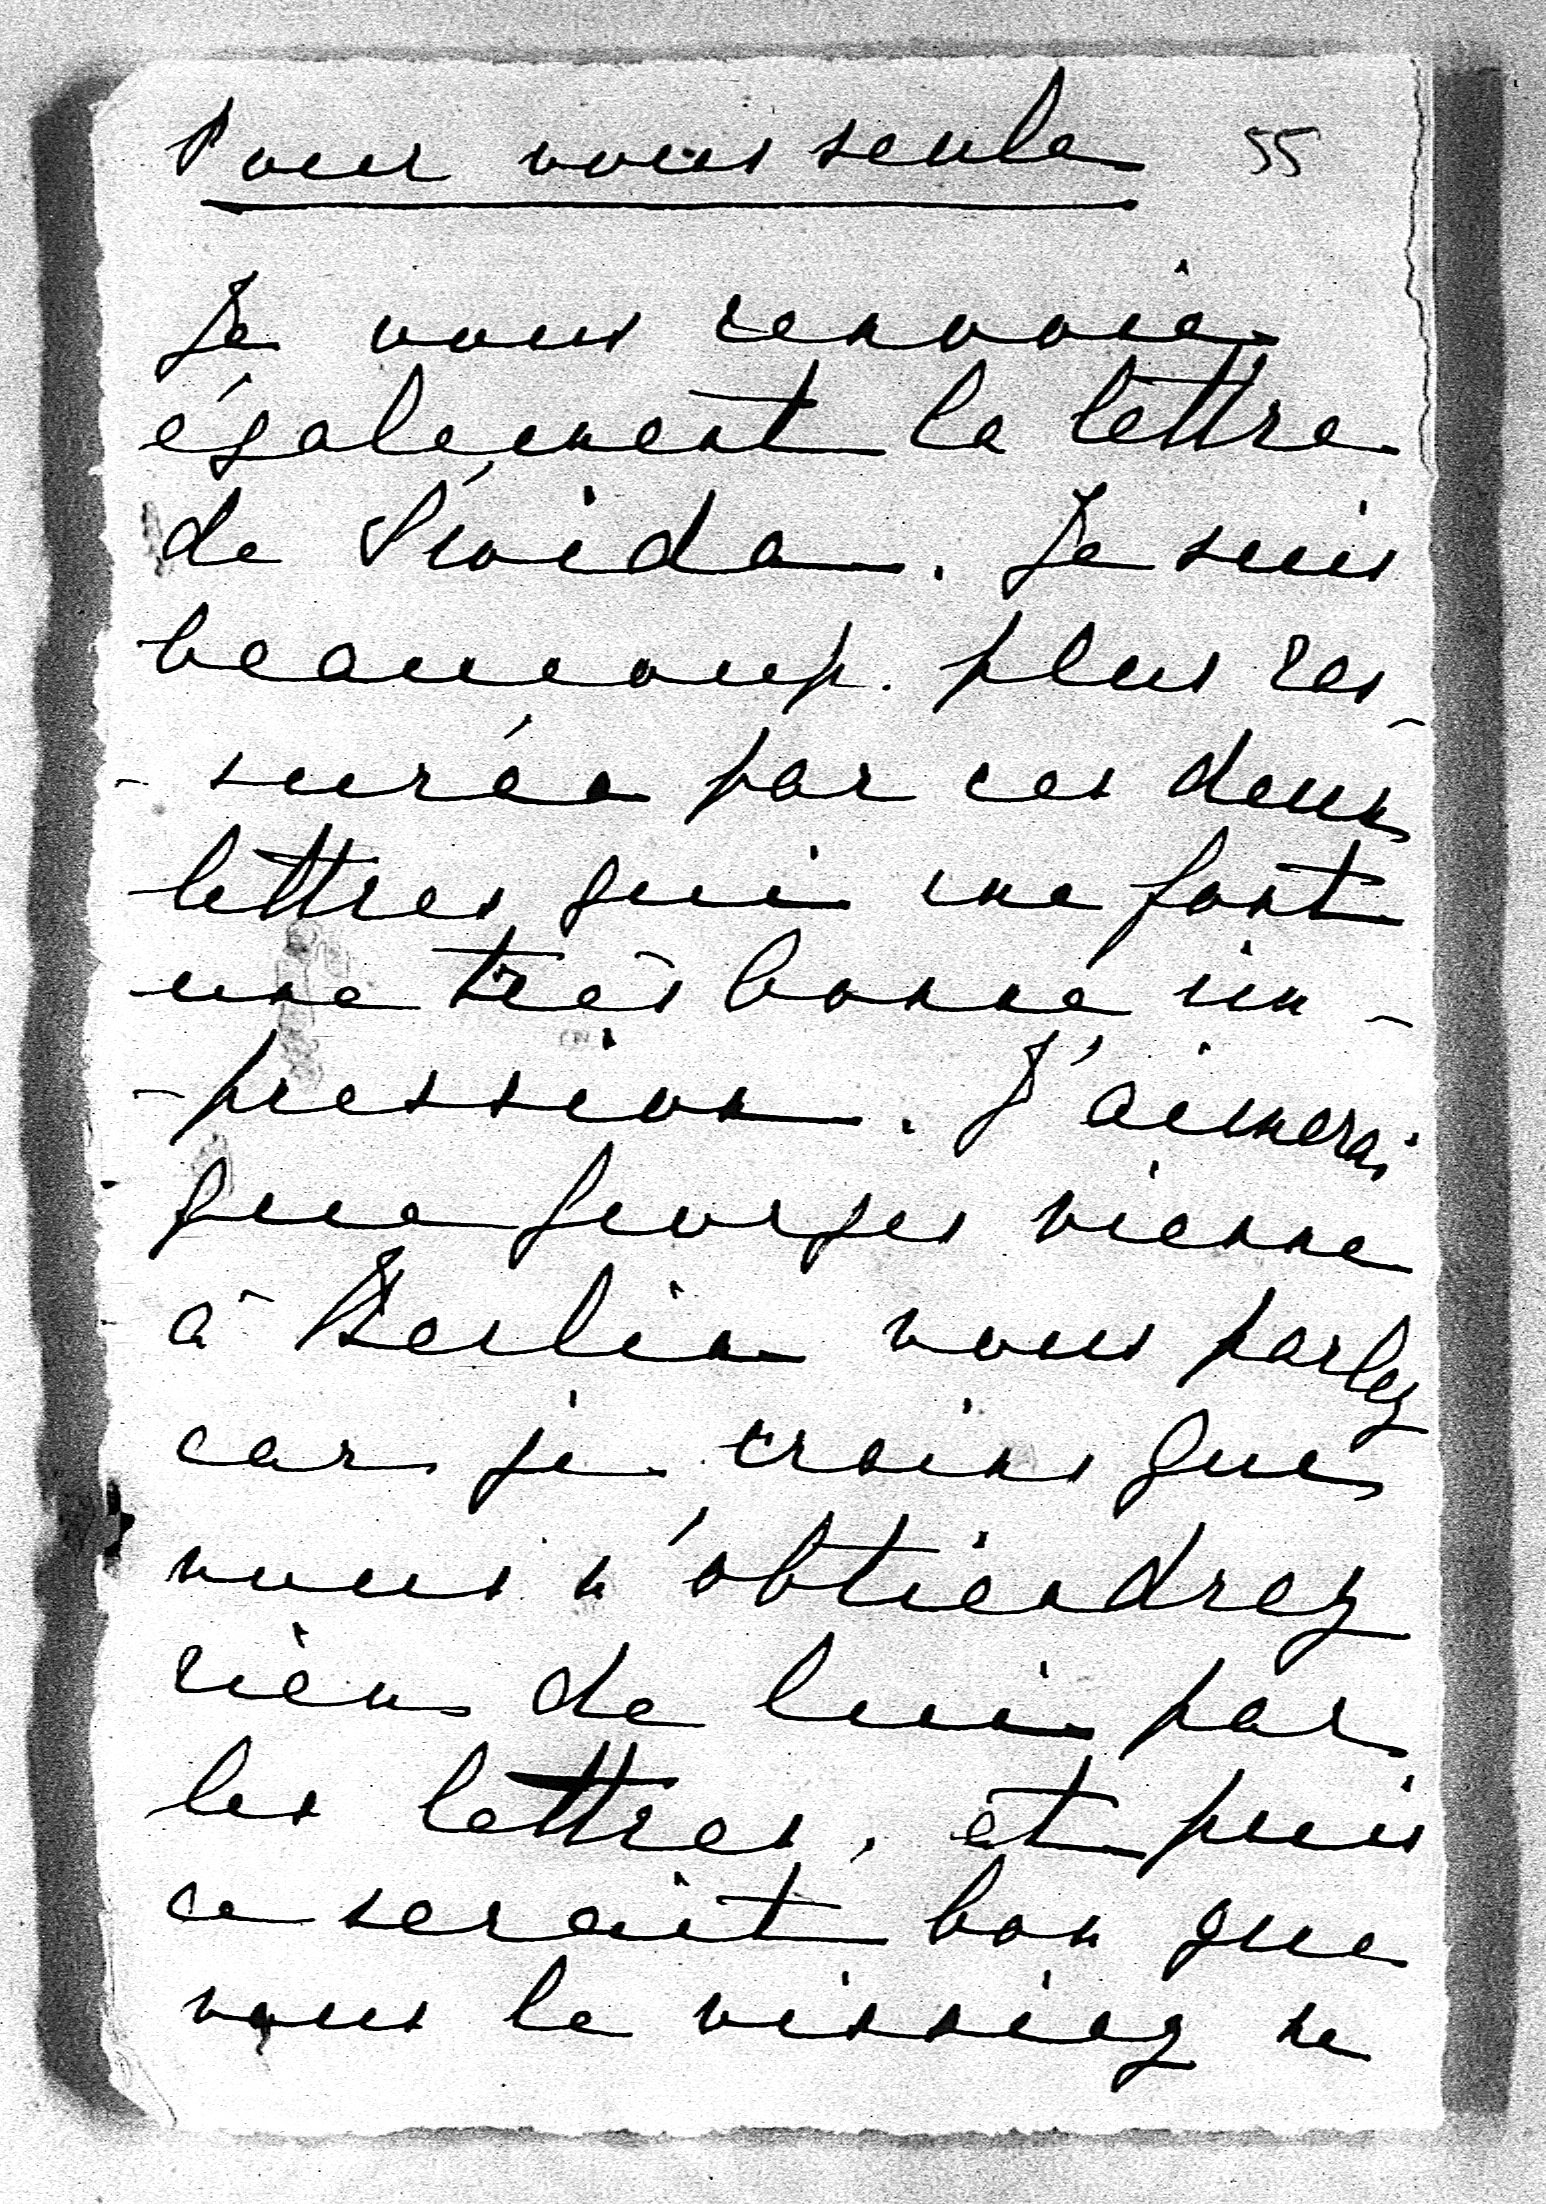 Pour vous seule 55
Je vous renvoie
également la lettre
de . Je suis
beaucoup plus ras-
-surée par ces deux
lettres qui me font
une très bonne im-
-pression. J'aimerai
que Georges vienne
à Berlin vous parlez
car je crains que
vous n'obtiendrez
rien de lui par
les lettres, et puis
ce serait bon que
vous le vissiez se